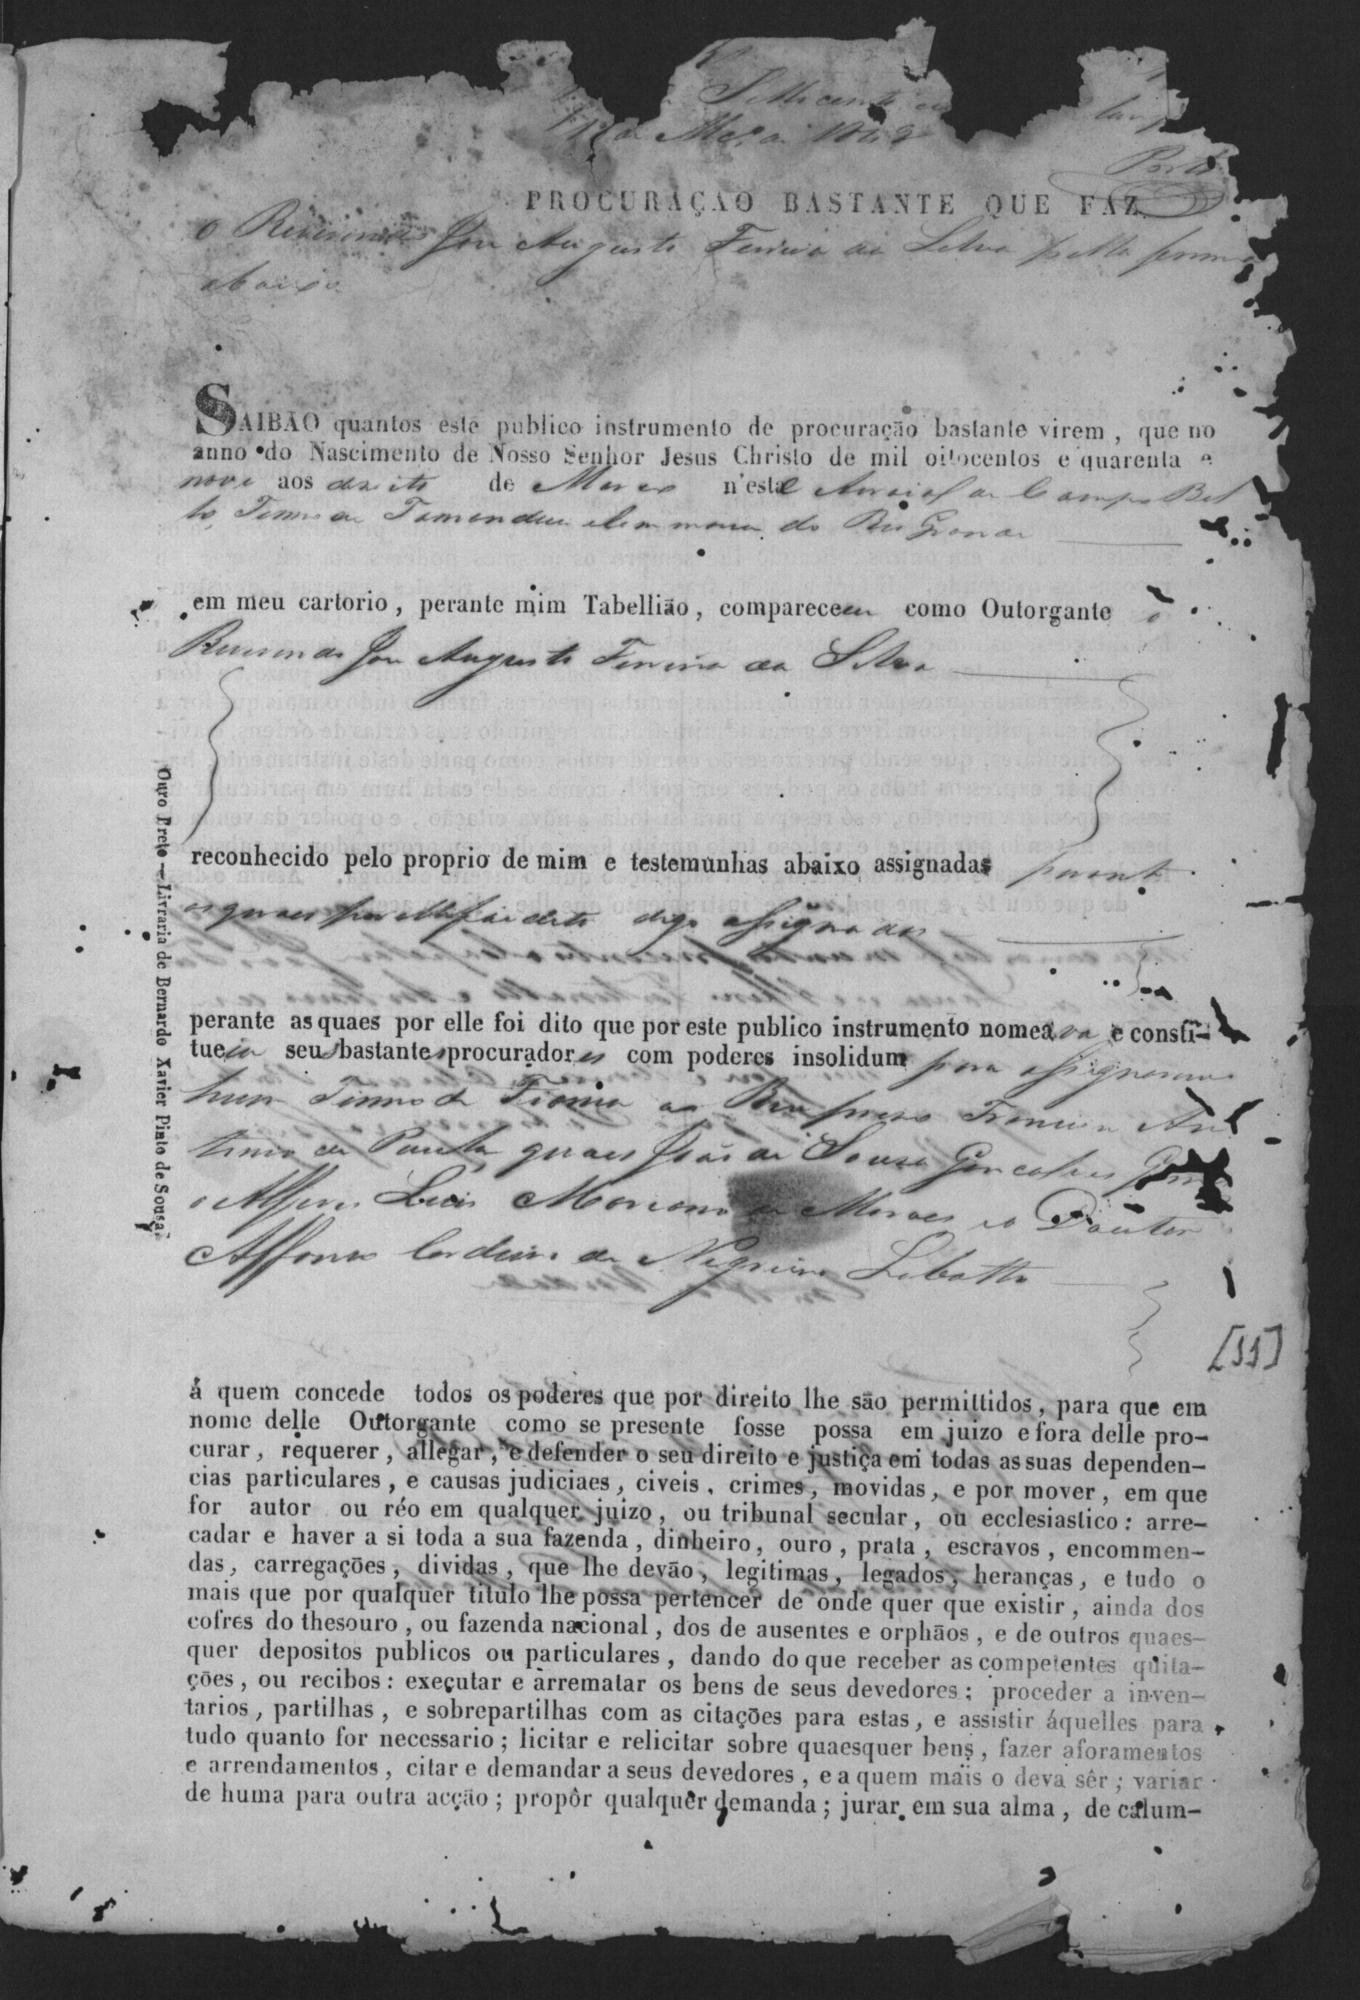 PROCURAÇAO BASTANTE QUE FAZ
o Reverendo Jose Augusto Ferreira da Silva pella forma
abaixo
SAIBÃO quantos este publico instrumento de procuração bastante virem, que no
anno do Nascimento de Nosso Senhor Jesus Christo de mil oitocentos e quarenta e
nove aos dezoito de Março n'este Arraial de Campo Bel
lo Termo de Tamandua e Commarca do Rio Grande
em meu cartorio, perante mim Tabellião, compareceu como Outorgante o
Reverendo Jose Augusto Ferreira da Silva
reconhecido pelo proprio de mim e testemunhas abaixo assignadas perante
as quaes por elle foi dito digo assignadas
perante as quaes por elle foi dito que por este publico instrumento nomeava e consti-
tueia seus bastantes procuradores com poderes insolidum para assignarem
hum Termo de Fiança ao Reo prezo Francisco An
tonio de Paula João de Souza Gonçalves
o Alferes Luis Marciano de Moraes e o Doutor
Affonso Cordeiro de Negreiros Lobatto
[11]
á quem concede todos os poderes que por direito lhe são permittidos, para que em
nome delle Outorgante como se presente fosse possa em juizo e fora delle pro-
curar, requerer, allegar, e defender o seu direito e justiça em todas as suas dependen-
cias particulares, e causas judiciaes, civeis, crimes, movidas, e por mover, em que
for autor ou réo em qualquer juizo, ou tribunal secular, ou ecclesiastico: arre-
cadar e haver a si toda a sua fazenda, dinheiro, ouro, prata, escravos, encommen-
das, carregações, dividas, que lhe devão, legitimas, legados, heranças, e tudo o
mais que por qualquer titulo lhe possa pertencer de onde quer que existir, ainda dos
cofres do thesouro, ou fazenda nacional, dos de ausentes e orphãos, e de outros quaes-
quer depositos publicos ou particulares, dando do que receber as competentes quita-
ções, ou recibos: executar e arrematar os bens de seus devedores; proceder a inven-
tarios, partilhas, e sobrepartilhas com as citações para estas, e assistir áquelles para
tudo quanto for necessario; licitar e relicitar sobre quaesquer bens, fazer aforamentos
e arrendamentos, citar e demandar a seus devedores, e a quem mais o deva sêr; variar
de huma para outra acção; propôr qualquer demanda; jurar em sua alma, de calum-
Ouro Preto — Livraria de Bernardo Xavier Pinto de Sousa.